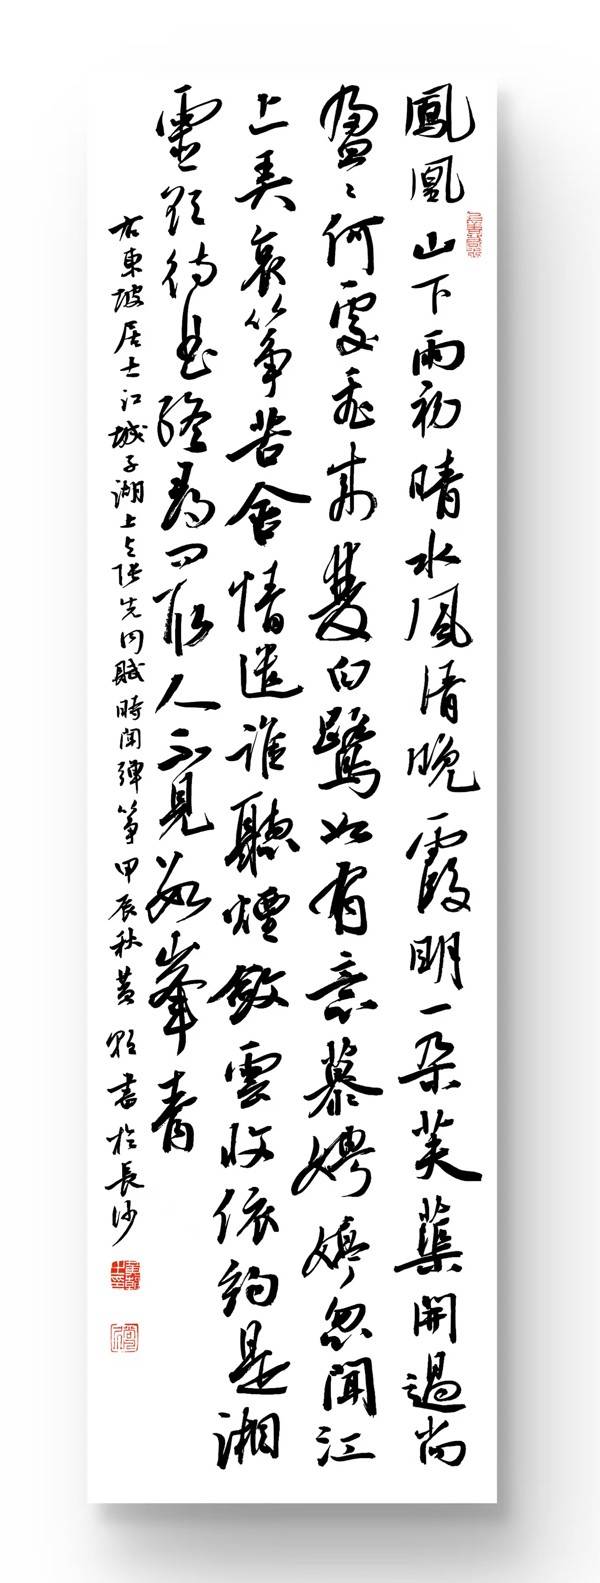 鳳凰山下雨初晴水風清晚霞明一朵芙蕖開過尚
盈〻何處飛來雙白鷺如有意慕娉婷忽聞江
上弄哀箏苦含情遣誰聽煙斂雲收依約是湘
靈欲待曲終尋問取人不見數峯青
右東坡居士江城子湖上与張先同賦時聞彈箏甲辰秋黃書於長沙